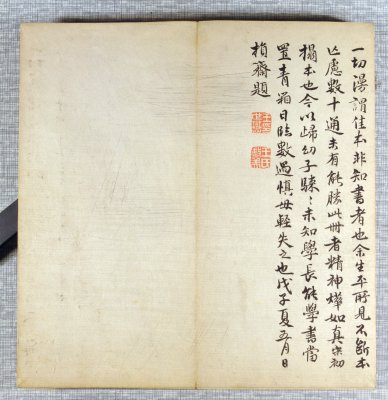 一切漫謂佳本非知書者也余生平所見不斷本
亡慮數十通未有能勝此冊者精神煥如真宋初
搨本也今以歸幼子騄〻未知學長能學書當
置青箱日臨數過慎毋輕失之也戊子夏五月日
損齋題